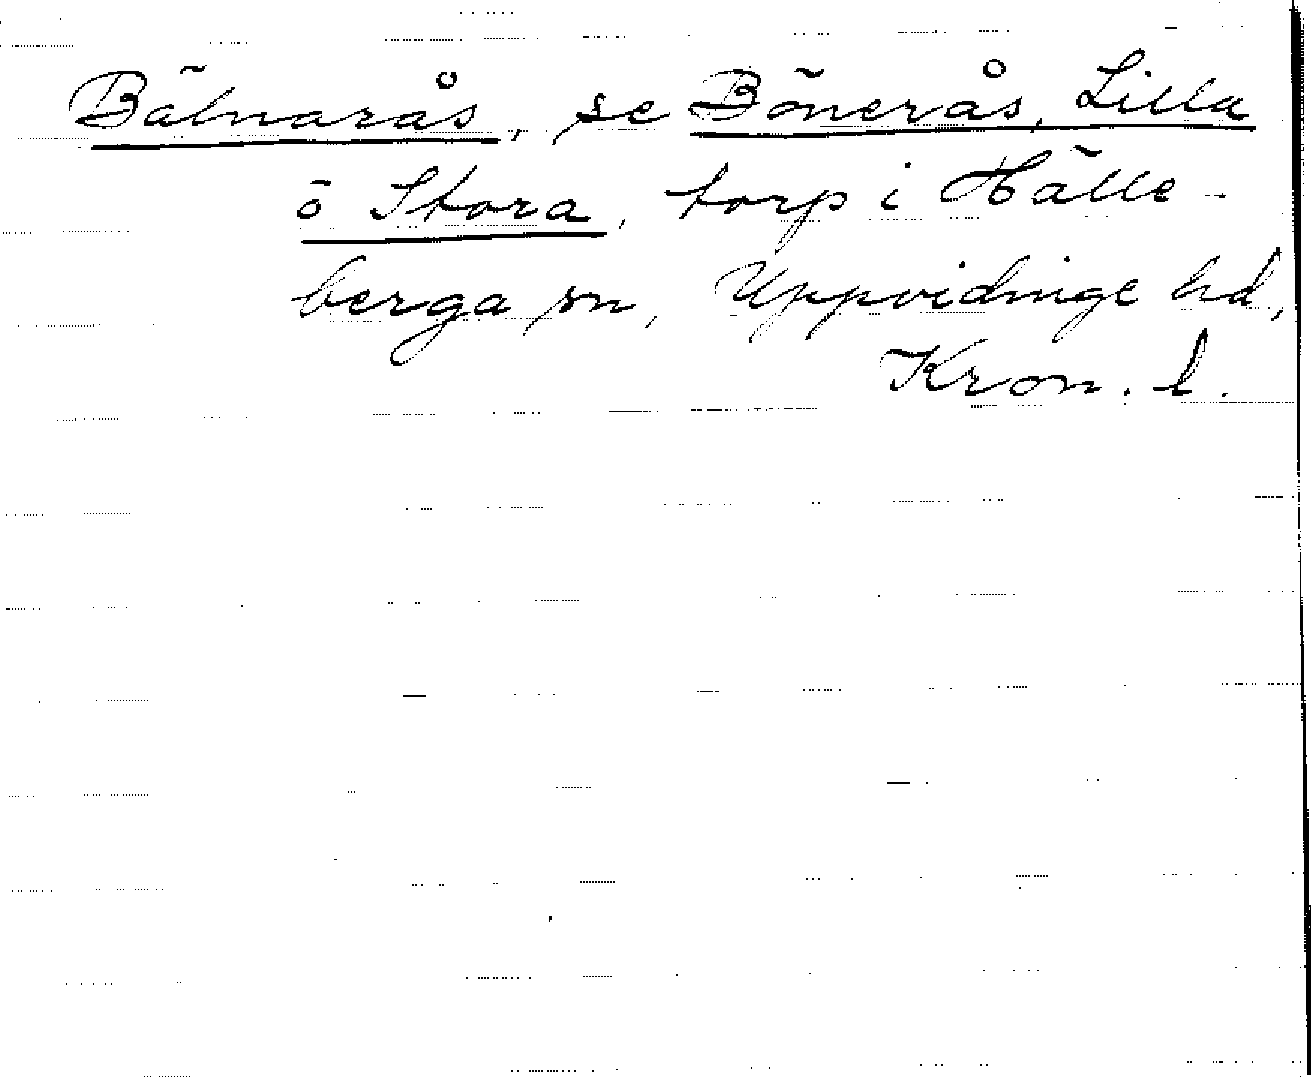 Bälnarås, se Bönerås, Lilla
o Stora, torp i Hälle-
berga sn, Uppvidinge hd,
Kron. l.